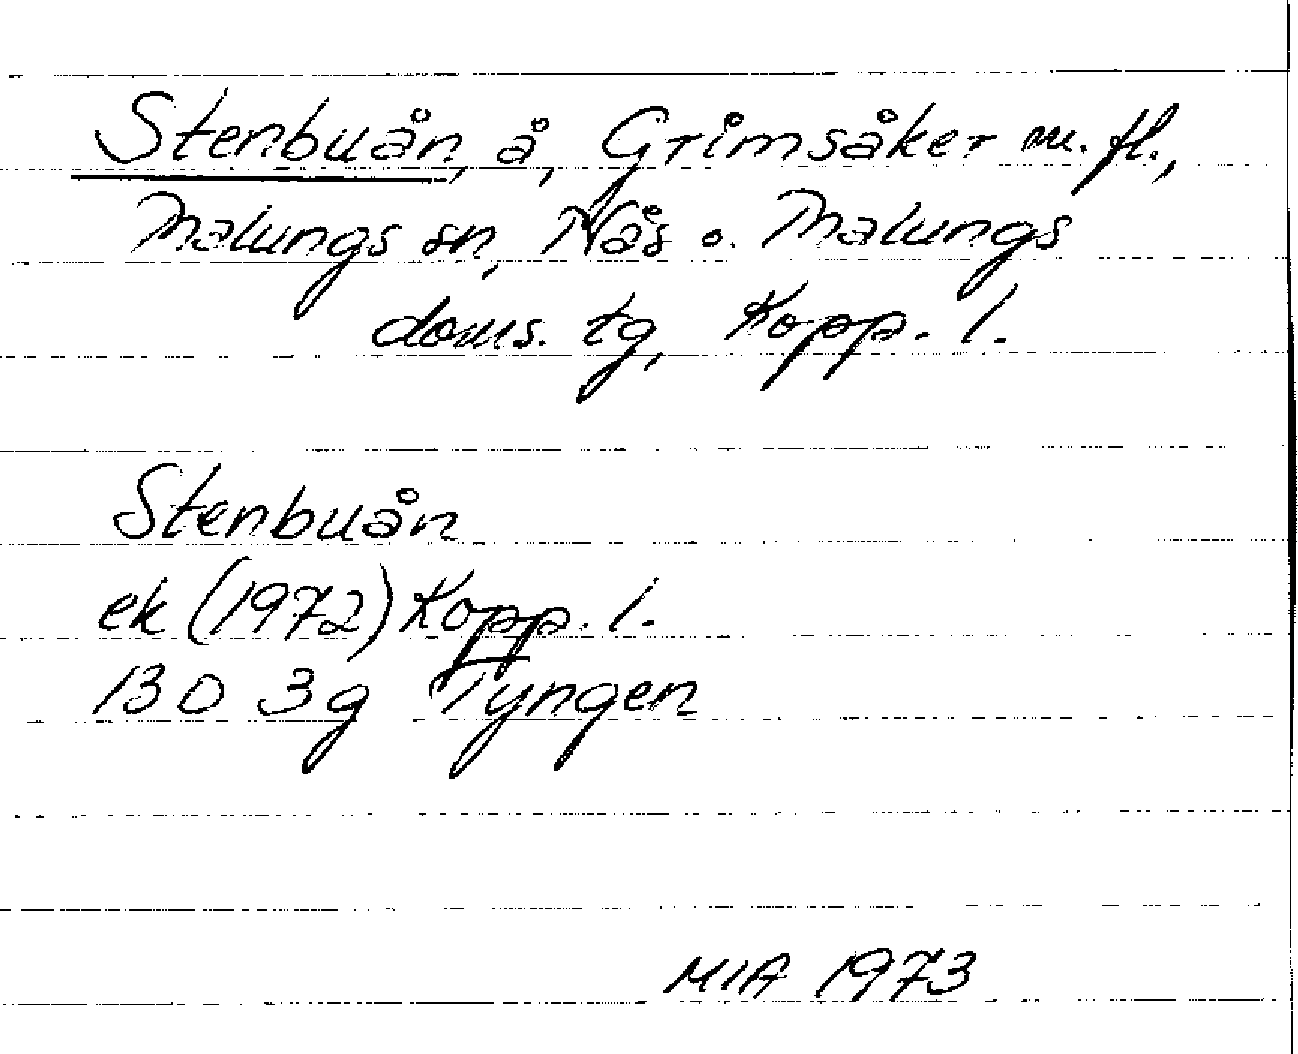 Stenbuån, å, Grimsåker m. fl.,
Malungs sn, Nås o. Malungs
doms. tg, Kopp. l.
Stenbuån
ek (1972) Kopp. l.
13D 3g Tyngen
MIA 1973